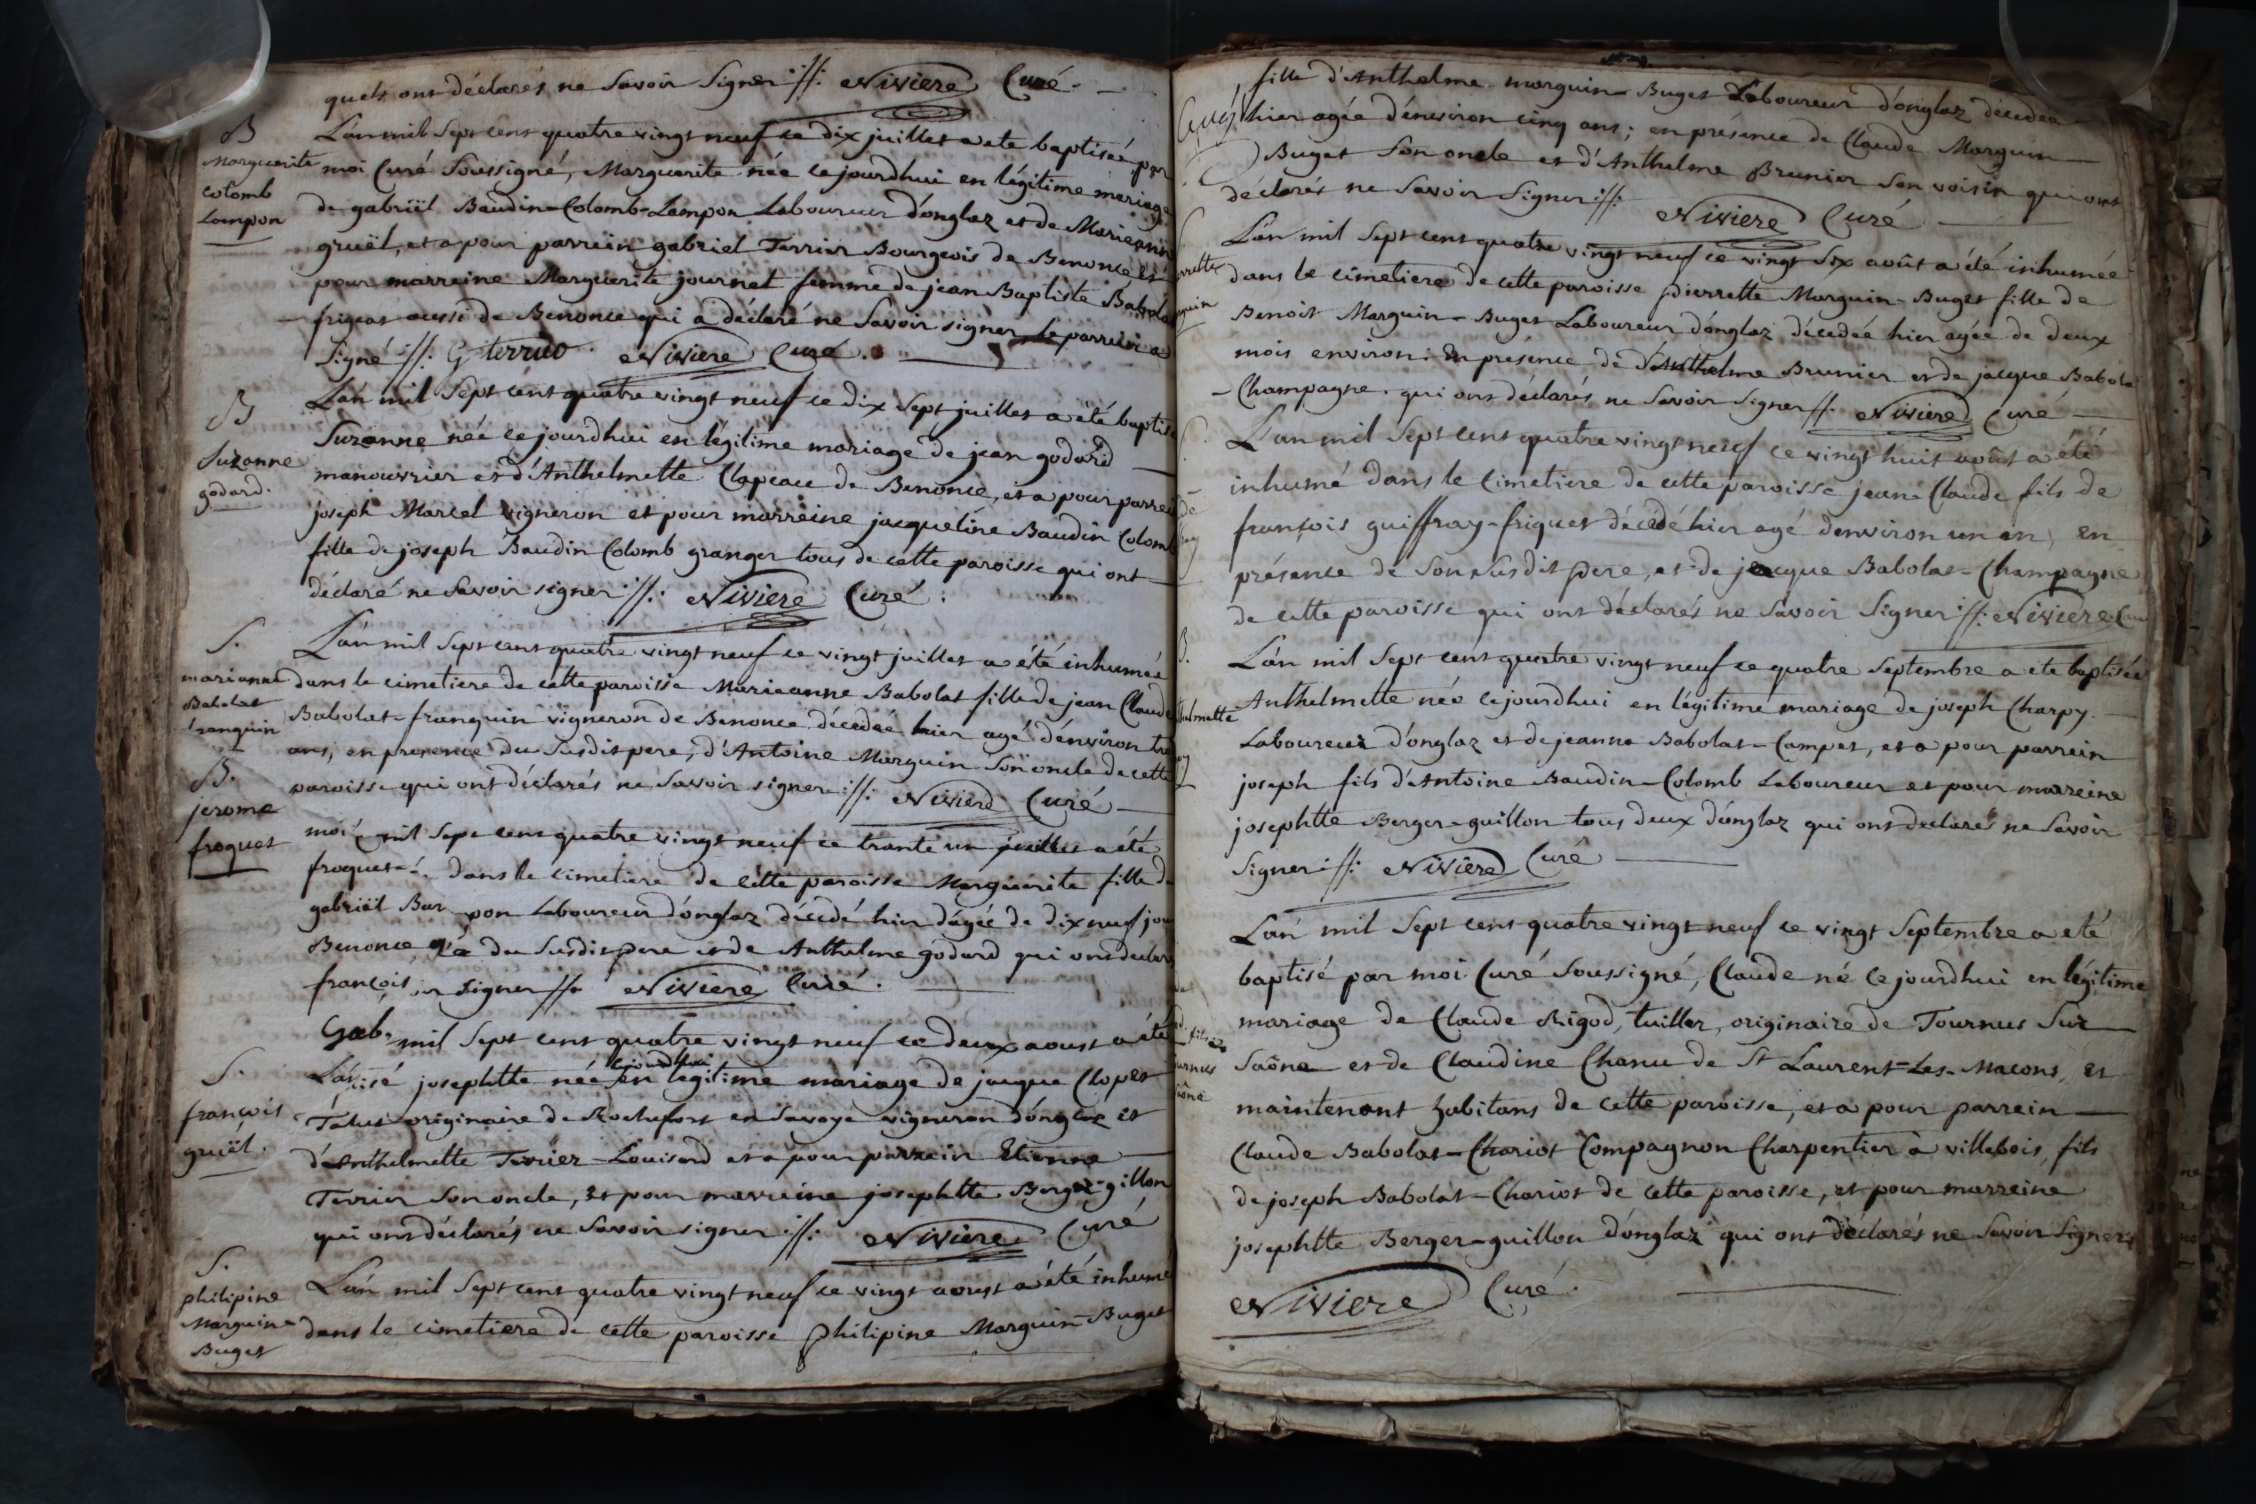 quels ont déclarés ne Savoir Signer :/: Niviere Curé.
B
Marguerite
Colomb
Lampon
L'an mil Sept cent quatre vingt neuf ce dix juillet a eté baptisée par
moi Curé Soussigné, Marguerite née ce jourdhui en légitime mariage
de gabriël Baudin-Colomb-Lampon Laboureur d'onglaz et de Marieanne
gruël, et a pour parrein gabriel Terrier Bourgeois de Benonce et
pour marreine Marguerite journet femme de jean Baptiste Babolat
friquet aussi de Benonce qui a déclaré ne Savoir signer le parrein a
Signé :/: Niviere Curé.
B
Suzanne
godard.
L'an mil Sept cent quatre vingt neuf ce dix Sept juillet a été baptisé
Suzanne née ce jourdhui en légitime mariage de jean godard
manouvrier et d'Anthelmette Clapeau de Benonce, et a pour parrein
joseph Marcel vigneron et pour marreine jacqueline Baudin Colomb
fille de joseph Baudin Colomb granger tous de cette paroisse qui ont
déclaré ne Savoir signer :/: Niviere Curé.
S.
marianne
Babolat
franquin
L'an mil Sept cent quatre vingt neuf ce vingt juillet a été inhumée
dans le cimetiere de cette paroisse Marieanne Babolat fille de jean Claude
Babolat-franquin vigneron de Benonce décedée hier agé d'environ
ans, en presence du Susdit pere, d'Antoine Marguin Son oncle de cette
paroisse qui ont déclarés ne Savoir signer :/: Niviere Curé
B.
jerome
froquet
moi mil Sept cent quatre vingt neuf ce trante un juillet a été
froquet dans le cimetiere de cette paroisse Marguerite fille de
gabriël Bau pon Laboureur d'onglaz décedé hier d'agée de dix neuf jou
Benonce du Susdit pere et de Anthelme godard qui ont declar
françois signer :/: Niviere Curé.
Gab mil Sept cent quatre vingt neuf ce deux aoust a été
L'an isé josephtte née cejourdhui en légitime mariage de jacque Clopet
originaire de Rochefort en Savoye vigneron d'onglaz et
d'Anthelmette Terrier-Louisard et a pour parrein Etienne
Terrier Son oncle, et pour marreine josephtte Berger-gillon
qui ont déclarés ne Savoir signer :/: Niviere Curé
S.
françois
gruël.
S.
philipine
Marguin
Buget
L'an mil Sept cent quatre vingt neuf ce vingt aoust a été inhumé
dans le cimetiere de cette paroisse Philipine Marguin-Buget
fille d'Anthelme marguin-Buget Laboureur d'onglaz décedée
hier agée d'environ cinq ans; en présence de Claude Marguin
Buget Son oncle et d'Anthelme Brunier Son voisin qui ont
déclarés ne Savoir Signer :/: Niviere Curé
L'an mil Sept cent quatre vingt neuf ce vingt Six août a été inhumée
dans le cimetiere de cette paroisse Pierrette Marguin-Buget fille de
Benoit Marguin-Buget Laboureur d'onglaz décedée hier agée de deux
mois environ: en présence de d'Anthelme Brunier et de jacque Babola
-Champagne. qui ont déclarés ne Savoir Signer :/: Niviere Curé
L'an mil Sept cent quatre vingt neuf ce vingt huit août a été
inhumé dans le Cimetiere de cette paroisse jean Claude fils de
françois guiffray-friquet décedé hier agé d'environ un an, en
présence de Son Susdit pere, et de jacque Babolat-Champagne
de cette paroisse qui ont déclarés ne Savoir Signer :/: Niviere Cu
B.
L'an mil Sept cent quatre vingt neuf ce quatre Septembre a été baptisée
Anthelmette née cejourdhui en légitime mariage de joseph Charpy
Laboureur d'onglaz et de jeanne Babolat-Campet, et a pour parrein
joseph fils d'Antoine Baudin-Colomb Laboureur et pour marreine
josephtte Berger-guillon tous deux d'onglaz qui ont déclarés ne Savoir
Signer :/: Niviere Curé
L'an mil Sept cent quatre vingt neuf ce vingt Septembre a été
baptisé par moi Curé Soussigné, Claude né cejourdhui en légitime
mariage de Claude Rigod, tuillier, originaire de Tournus Sur
Saône et de Claudine Chanu de St Laurent-Les-Macons, et
maintenant habitans de cette paroisse, et a pour parrein
Claude Babolat-Chariot Compagnon Charpentier à villebois, fils
de joseph Babolat-Chariot de cette paroisse, et pour marreine
josephtte Berger-guillon d'onglaz qui ont déclarés ne Savoir Signer
Niviere Curé.